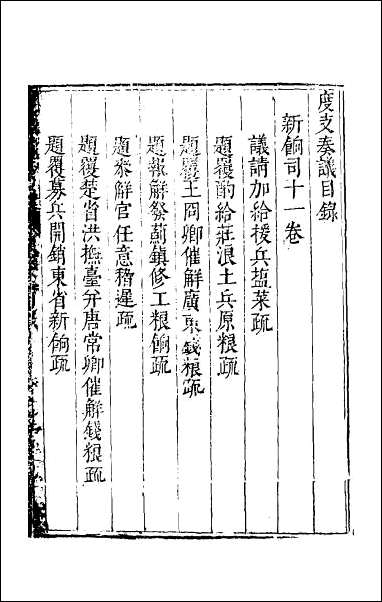 度支奏議目錄
新餉司十一卷
議請加給援兵鹽菜疏
題覆酌給莊浪土兵原粮疏
題覆王冏卿催解廣東錢粮疏
題報解發薊鎮修工粮餉疏
題參解官任意稽遲疏
題覆楚省洪撫臺并唐常卿催解錢粮疏
題覆募兵開銷東省新餉疏